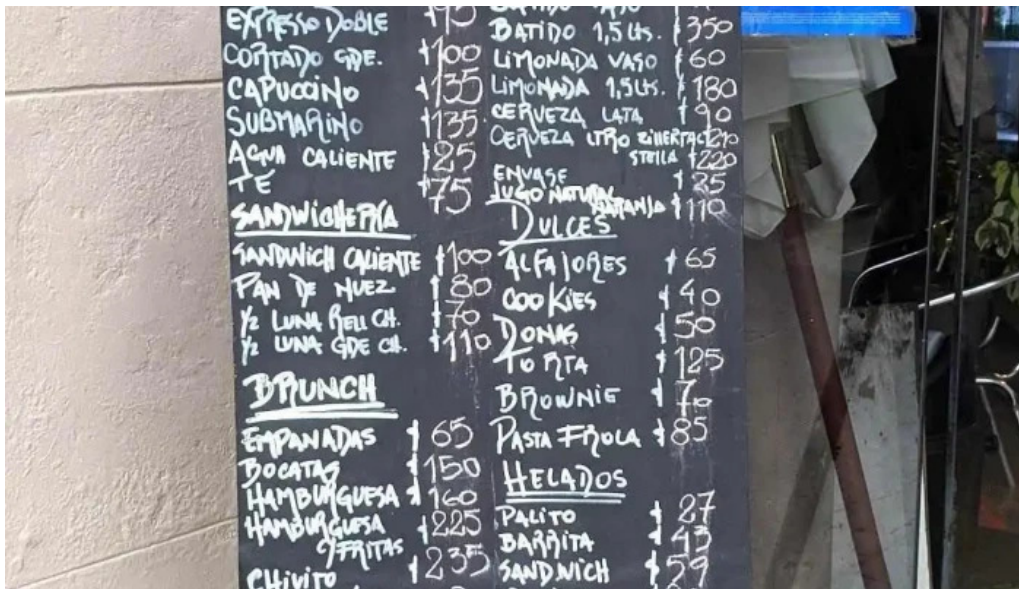 EXPRESSO DOBLE $95
CORTADO GDE. $100
CAPUCCINO $135
SUBMARINO $135
AGUA CALIENTE $25
TÉ $75
SANDWICHERÍA
SANDWICH CALIENTE $100
PAN DE NUEZ $80
1/2 LUNA RELL CH. $70
1/2 LUNA GDE CH. $110
BRUNCH
EMPANADAS $65
BOCATAS $150
HAMBURGUESA $160
HAMBURGUESA
C/FRITAS $225
CHIVITO $235
BATIDO 1,5 LTS. $350
LIMONADA VASO $60
LIMONADA 1,5 LTS. $180
CERVEZA LATA $90
CERVEZA LTRO ZILLERTAL $210
STELLA $220
ENVASE $25
JUGO NATURAL
NARANJA $110
DULCES
ALFAJORES $65
COOKIES $40
DONAS $50
TORTA $125
BROWNIE $70
PASTA FROLA $85
HELADOS
PALITO $27
BARRITA $43
SANDWICH $59